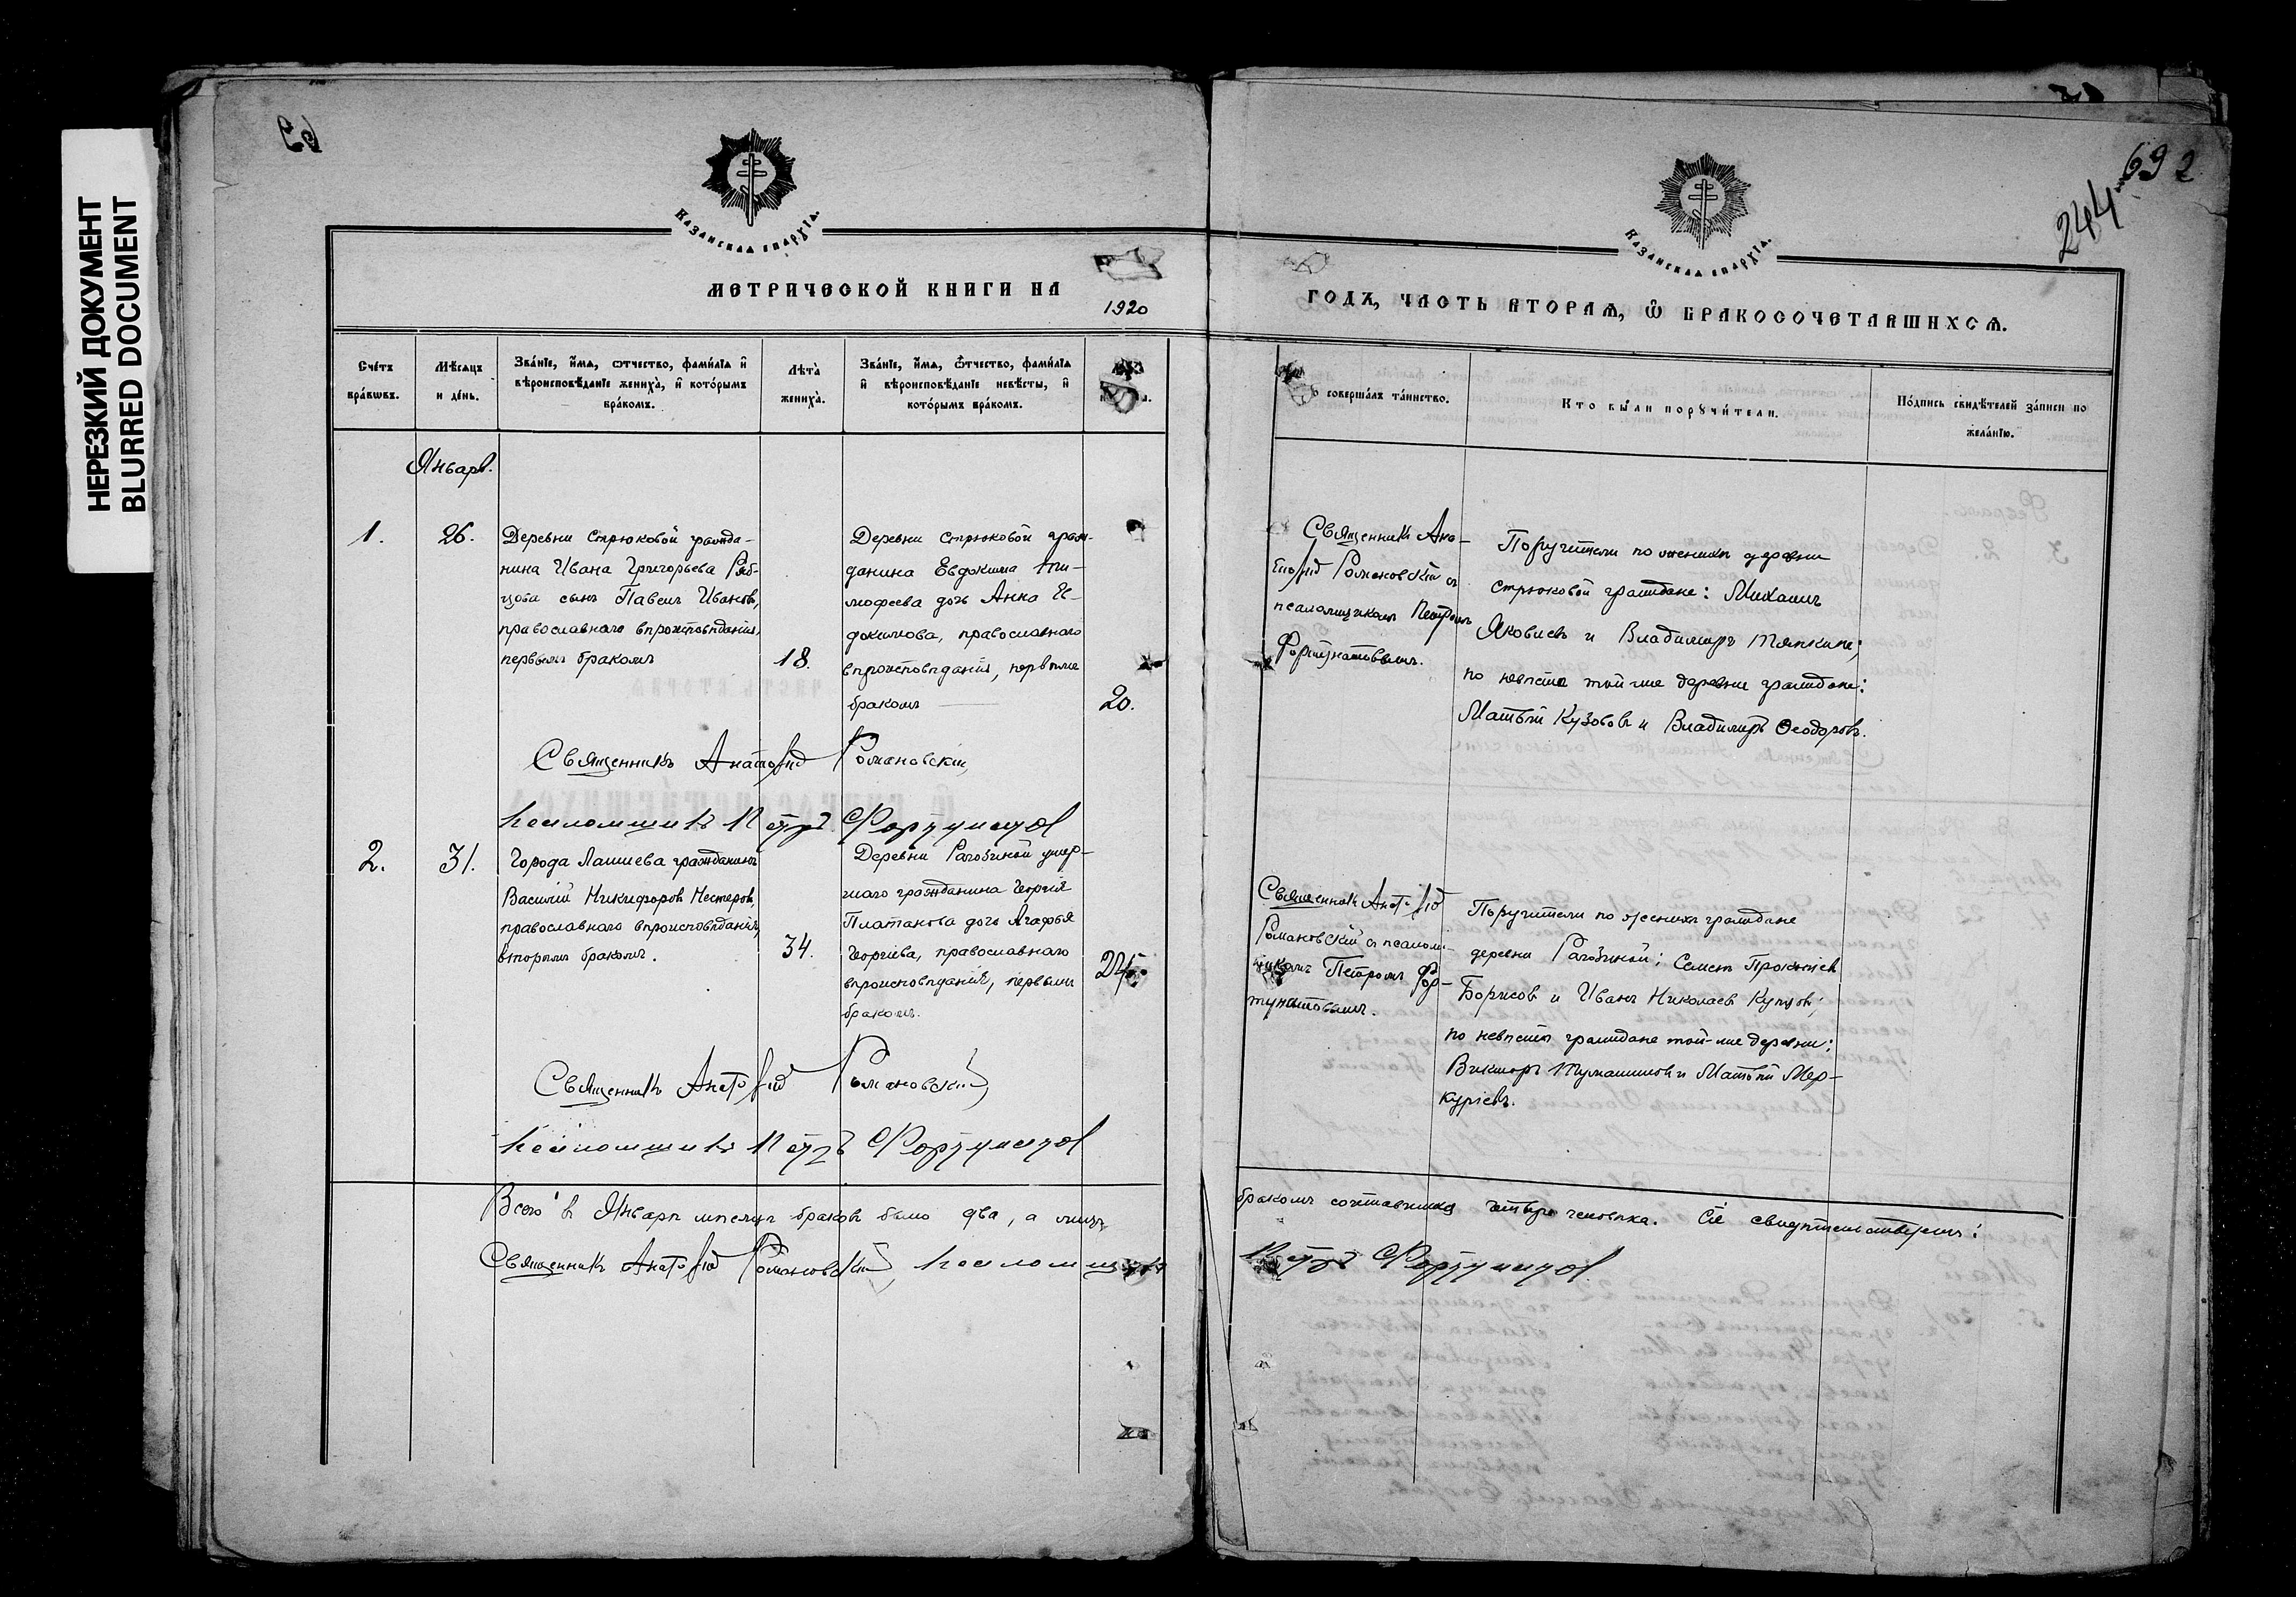 НЕРЕЗКИЙ ДОКУМЕНТ
BLURRED DOCUMENT
Казанская Епархія.
МЕТРИЧЕСКОЙ КНИГИ НА
1920
Счётъ
бра́кѡвъ.
Мѣсяцъ
и де́нь.
Зва́ніе, и́мя, ѻтчество, фами́лія и
вѣроисповѣ́даніе жениха̀, и кото́рымъ
бра́комъ.
Лѣта̀
жениха̀.
Зва́ніе, и́мя, ѻтчество, фами́лія
и вѣроисповѣ́даніе невѣ́сты, и
кото́рымъ бра́комъ.
Январь.
1.
26.
Деревни Стрюковой гражда-
нина Ивана Григорьева Ряб-
цова сынъ Павелъ Ивановъ,
православнаго вѣроисповѣданія,
первымъ бракомъ
18.
Деревни Стрюковой граж-
данина Евдокима Ти-
мофеева дочь Анна Ев-
докимова, православнаго
вѣроисповѣданія, первымъ
бракомъ
20.
Священникъ Анатолій Романовскій,
Псаломщикъ Петръ Фортунатов
2.
31.
Города Лаишева гражданинъ
Василій Никифоров Нестеров,
православнаго вѣроисповѣданія,
вторымъ бракомъ.
34.
Деревни Рагозиной умер-
шаго гражданина Георгія
Платанова дочь Агафья
Георгіева, православнаго
вѣроисповѣданія, первымъ
бракомъ.
Священникъ Анатолій Романовскій,
Псаломщикъ Петръ Фортунатов
Всего въ Январѣ мѣсяцѣ браков было два, а лицъ
Священникъ Анатолій Романовскій, Псаломщикъ
692
244
Казанская Епархія.
ГОДЪ, ЧАСТЬ ВТОРАЯ, Ѡ БРАКОСОЧЕТАВШИХСЯ.
соверша́лъ та́инство.
Кто бы́ли поручи́тели.
По́дпись свидѣ́телей за́писи по
жела́нію.
Священникъ Ана-
толій Романовскій съ
псаломщикомъ Петромъ
Фортунатовымъ.
Поручители по женихѣ деревни
Стрюковой граждане: Михаилъ
Яковлевъ и Владимиръ Тяпкинъ;
по невѣстѣ той-же деревни граждане:
Матвѣй Кузовов и Владимиръ Ѳеодоровъ.
Священникъ Анатолій
Романовскій съ псалом-
щикомъ Петромъ Фор-
тунатовымъ.
Поручители по женихѣ граждане
деревни Рагозиной: Семен Прокопіев
Борисов и Иванъ Николаев Купцов;
по невѣстѣ граждане той-же деревни:
Викторъ Тумашшов и Матвѣй Мер-
куріевъ.
бракомъ сочетавшихся четыре человѣка. Сіе свидѣтельствуемъ:
Петръ Фортунатов.